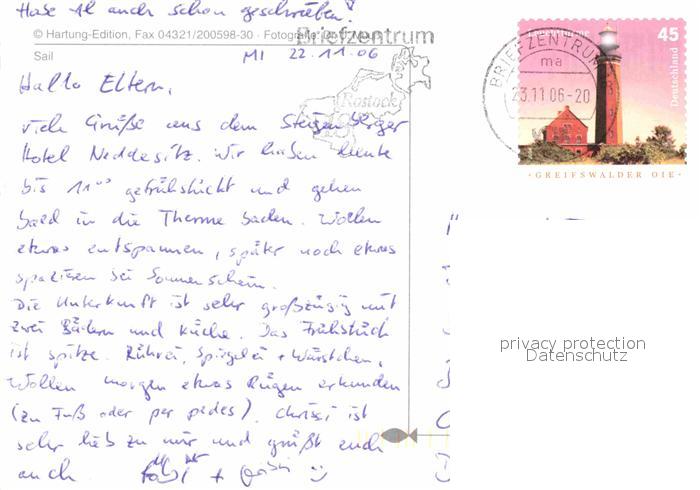 Hase hat auch schon geschrieben!
Briefzentrum
© Hartung-Edition, Fax 04321/200598-30 · Fotografie:
Sail
MI 22.11.06
Hallo Eltern,
Rostock
viele Grüße aus dem Steigenberger
Hotel Neddesitz. Wir haben heute
bis 11⁰⁰ gefrühstückt und gehen
bald in die Therme baden. Wollen
etwas entspannen, später noch etwas
spazieren bei Sonnenschein.
Die Unterkunft ist sehr großzügig mit
zwei Bädern und Küche. Das Frühstück
ist spitze. Rührei, Spiegelei + Würstchen.
Wollen morgen etwas Rügen erkunden
(zu Fuß oder per pedes). Chrissi ist
sehr lieb zu mir und grüßt euch
auch
BRIEFZENTRUM
ma
23.11.06-20
45
Deutschland
·GREIFSWALDER OIE·
privacy protection
Datenschutz